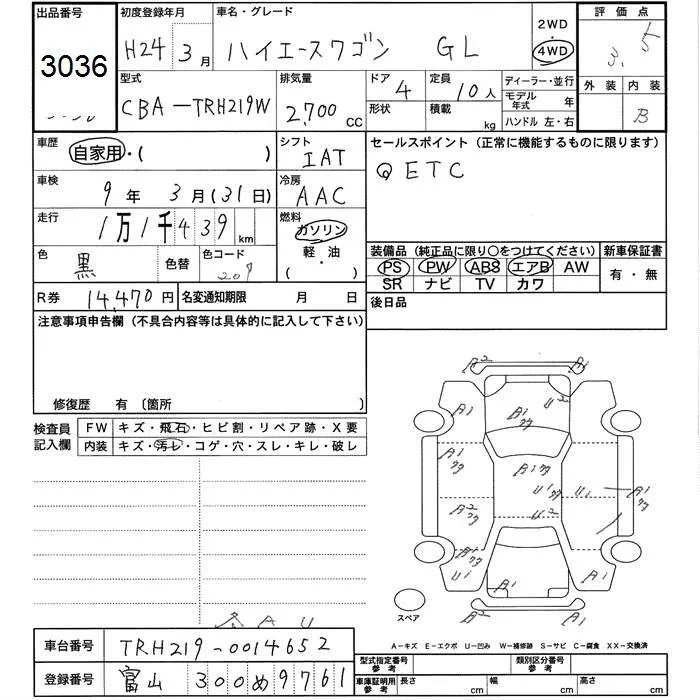 出品番号 初度登録年月 車名・グレード 2WD 評価点
3036 H24 3月 ハイエースワゴン GL 4WD 3.5
型式 排気量 ドア 定員 ディーラー・並行 外装 内装
CBA-TRH219W 2,700cc 4 10人 モデル年式 年 B
形状 積載 kg ハンドル 左・右
車歴 自家用・( ) シフト IAT セールスポイント (正常に機能するものに限ります)
車検 9年 3月(31日) 冷房 AAC ETC
走行 1万1千439km 燃料 ガソリン
軽・油
( )
色 黒 色替 色コード 209
装備品 (純正品に限り○をつけてください) 新車保証書
PS PW ABS エアB AW 有・無
SR ナビ TV カワ
R券 14,470円 名変通知期限 月 日 後日品
注意事項申告欄 (不具合内容等は具体的に記入して下さい)
修復歴 有 〔箇所 〕
検査員記入欄 FW キズ・飛石・ヒビ割・リペア跡・X要
内装 キズ・汚レ・コゲ・穴・スレ・キレ・破レ
A2 A1
A1 A1 U2 A1
A1 A1 U1 U1 A1
A2 U2
U1 A1 A1
A2 A1
スペア
A-キズ E-エクボ U-凹み W-補修跡 S-サビ C-腐食 XX-交換済
車台番号 TRH219-0014652
型式指定番号 参考 類別区分番号 参考
登録番号 富山 300 め 9761
車庫証明用参考 長さ cm 幅 cm 高さ cm